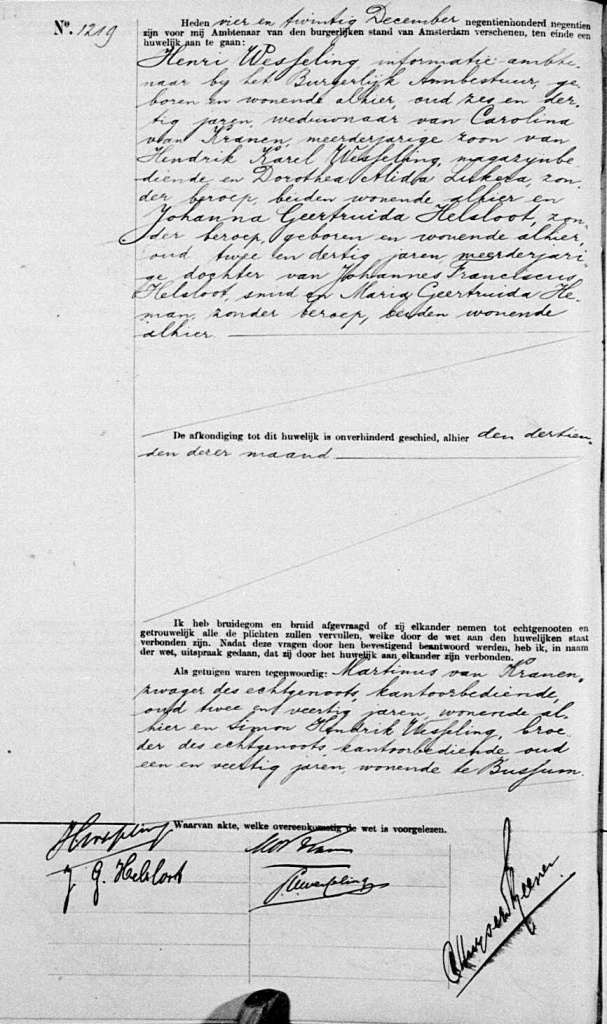 No. 1219
Heden vier en twintig December negentienhonderd negentien
zijn voor mij Ambtenaar van den burgerlijken stand van Amsterdam verschenen, ten einde een
huwelijk aan te gaan:
Henri Wesseling, informatie-ambte-
naar bij het Burgerlijk Armbestuur, ge-
boren en wonende alhier, oud zes en der-
tig jaren, weduwnaar van Carolina
van Kranen, meerderjarige zoon van
Hendrik Karel Wesseling, magazijnbe-
diende, en Dorothea Alida, zon-
der beroep, beiden wonende alhier en
Johanna Geertruida Helsloot, zon-
der beroep, geboren en wonende alhier,
oud twee en dertig jaren, meerderjari-
ge dochter van Johannes Franciscus
Helsloot, smid en Maria Geertruida He-
man, zonder beroep, beiden wonende
alhier.
De afkondiging tot dit huwelijk is onverhinderd geschied, alhier den dertien-
den dezer maand
Ik heb bruidegom en bruid afgevraagd of zij elkander nemen tot echtgenooten en
getrouwelijk alle de plichten zullen vervullen, welke door de wet aan den huwelijken staat
verbonden zijn. Nadat deze vragen door hen bevestigend beantwoord werden, heb ik, in naam
der wet, uitspraak gedaan, dat zij door het huwelijk aan elkander zijn verbonden.
Als getuigen waren tegenwoordig: Martinus van Kranen,
zwager des echtgenoots, kantoorbediende,
oud twee en veertig jaren, wonende al-
hier en Simon Hendrik Wesseling, broe-
der des echtgenoots, kantoorbediende oud
een en veertig jaren, wonende te Bussum.
Waarvan akte, welke overeenkomstig de wet is voorgelezen.
HWesseling
J. G. Helsloot
SHWesseling